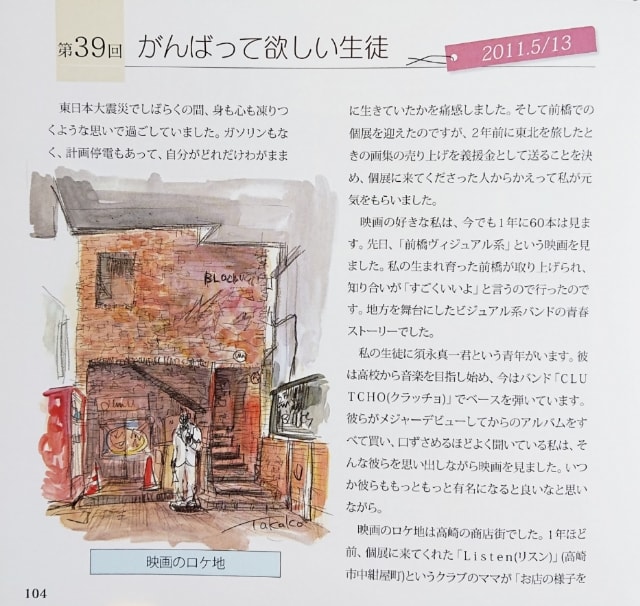 第39回 がんばって欲しい生徒
2011.5/13
東日本大震災でしばらくの間、身も心も凍りつ
くような思いで過ごしていました。ガソリンもな
く、計画停電もあって、自分がどれだけわがまま
に生きていたかを痛感しました。そして前橋での
個展を迎えたのですが、2年前に東北を旅したと
きの画集の売り上げを義援金として送ることを決
め、個展に来てくださった人からかえって私が元
気をもらいました。
映画の好きな私は、今でも1年に60本は見ま
す。先日、「前橋ヴィジュアル系」という映画を見
ました。私の生まれ育った前橋が取り上げられ、
知り合いが「すごくいいよ」と言うので行ったので
す。地方を舞台にしたビジュアル系バンドの青春
ストーリーでした。
私の生徒に須永真一君という青年がいます。彼
は高校から音楽を目指し始め、今はバンド「CLU
TCHO(クラッチョ)」でベースを弾いています。
彼らがメジャーデビューしてからのアルバムをす
べて買い、口ずさめるほどよく聞いている私は、そ
んな彼らを思い出しながら映画を見ました。いつ
か彼らももっともっと有名になると良いなと思い
ながら。
映画のロケ地は高崎の商店街でした。1年ほど
前、個展に来てくれた「Listen(リスン)」(高崎
市中紺屋町)というクラブのママが「お店の様子を
Takako
映画のロケ地
104